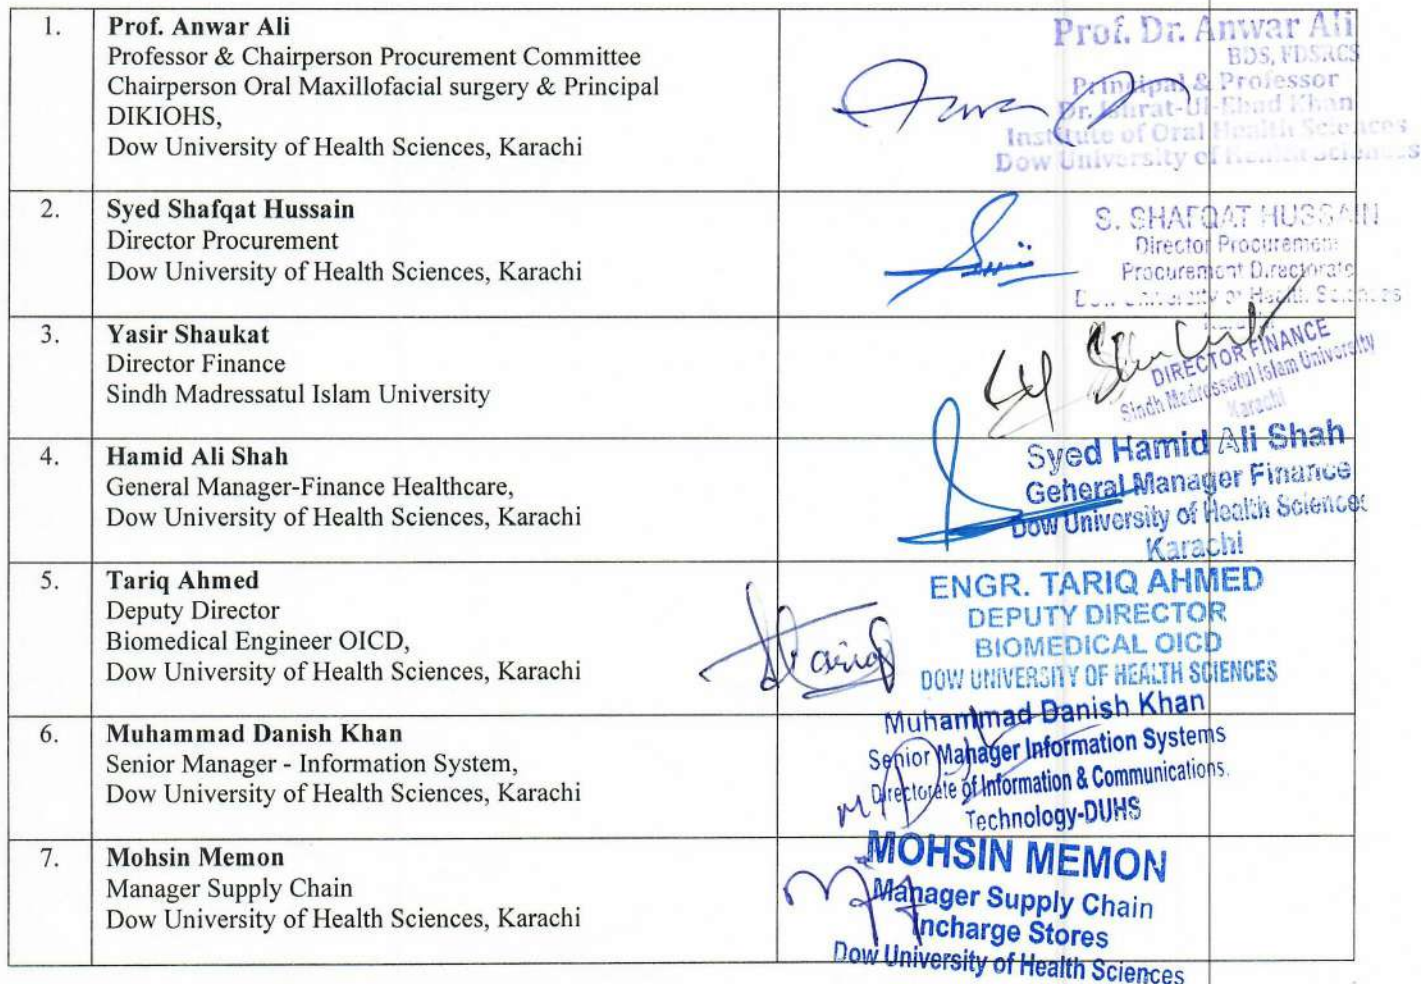 1. Prof. Anwar Ali
Professor & Chairperson Procurement Committee
Chairperson Oral Maxillofacial surgery & Principal
DIKIOHS,
Dow University of Health Sciences, Karachi
Prof. Dr. Anwar Ali
BDS, FDSRCS
Principal & Professor
Dr. Ishrat-Ul-Ebad Khan
Institute of Oral Health Sciences
Dow University of Health Sciences
2. Syed Shafqat Hussain
Director Procurement
Dow University of Health Sciences, Karachi
S. SHAFQAT HUSSAIN
Director Procurement
Procurement Directorate
Dow University of Health Sciences
3. Yasir Shaukat
Director Finance
Sindh Madressatul Islam University
DIRECTOR FINANCE
Sindh Madressatul Islam University
Karachi
4. Hamid Ali Shah
General Manager-Finance Healthcare,
Dow University of Health Sciences, Karachi
Syed Hamid Ali Shah
General Manager Finance
Dow University of Health Sciences
Karachi
5. Tariq Ahmed
Deputy Director
Biomedical Engineer OICD,
Dow University of Health Sciences, Karachi
ENGR. TARIQ AHMED
DEPUTY DIRECTOR
BIOMEDICAL OICD
DOW UNIVERSITY OF HEALTH SCIENCES
6. Muhammad Danish Khan
Senior Manager - Information System,
Dow University of Health Sciences, Karachi
Muhammad Danish Khan
Senior Manager Information Systems
Directorate of Information & Communications.
Technology-DUHS
7. Mohsin Memon
Manager Supply Chain
Dow University of Health Sciences, Karachi
MOHSIN MEMON
Manager Supply Chain
Incharge Stores
Dow University of Health Sciences